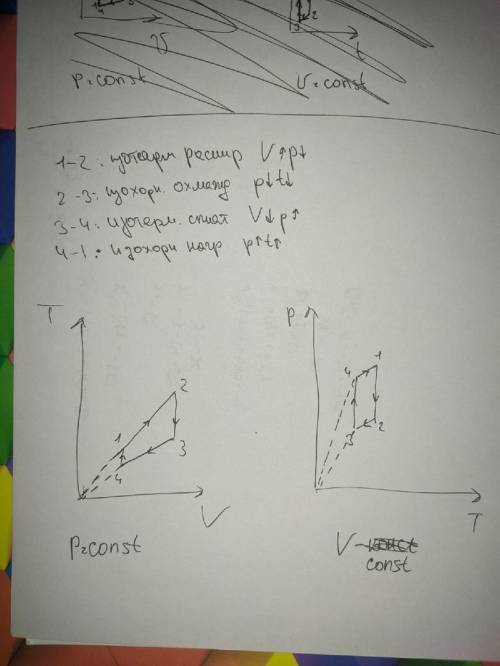 4 3
V
p=const
2
3
t
V=const
1-2: изотерм расшир V↑p↓
2-3: изохорн. охлажд p↓t↓
3-4: изотерм. сжат V↓p↑
4-1: изохорн нагр p↑t↑
T
2
1
3
4
V
P=const
P
1
4
3
2
T
V-
const